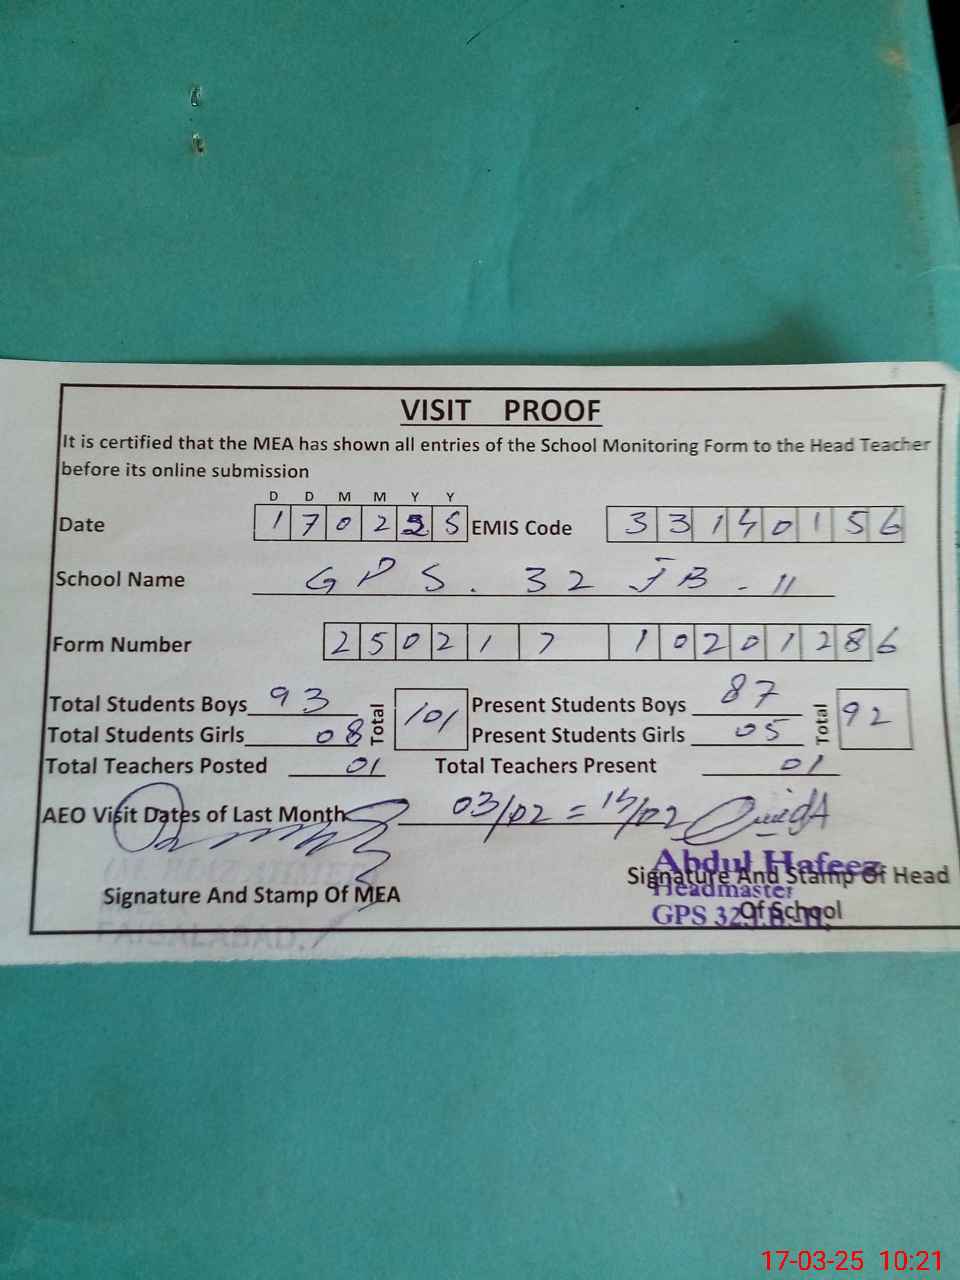 VISIT PROOF
It is certified that the MEA has shown all entries of the School Monitoring Form to the Head Teacher
before its online submission
D D M M Y Y
Date 1 7 0 2 2 5 EMIS Code 3 3 1 4 0 1 5 6
School Name G P S . 32 JB - II
Form Number 2 5 0 2 1 7 1 0 2 0 1 2 8 6
Total Students Boys 93 Total 101 Present Students Boys 87 Total 92
Total Students Girls 08 Present Students Girls 05
Total Teachers Posted 01 Total Teachers Present 01
AEO Visit Dates of Last Month 03/02 = 15/02
Abdul Hafeez
Signature And Stamp Of MEA Signature And Stamp Of Head
Headmaster
Of School
GPS 32
FAISALABAD.
17-03-25 10:21